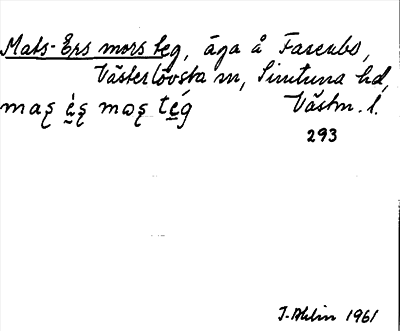 Mats-Ers mors teg, äga å Fasenbo,
Västerlövsta sn, Simtuna hd,
Västm. l.
293
J. Ahlin 1961